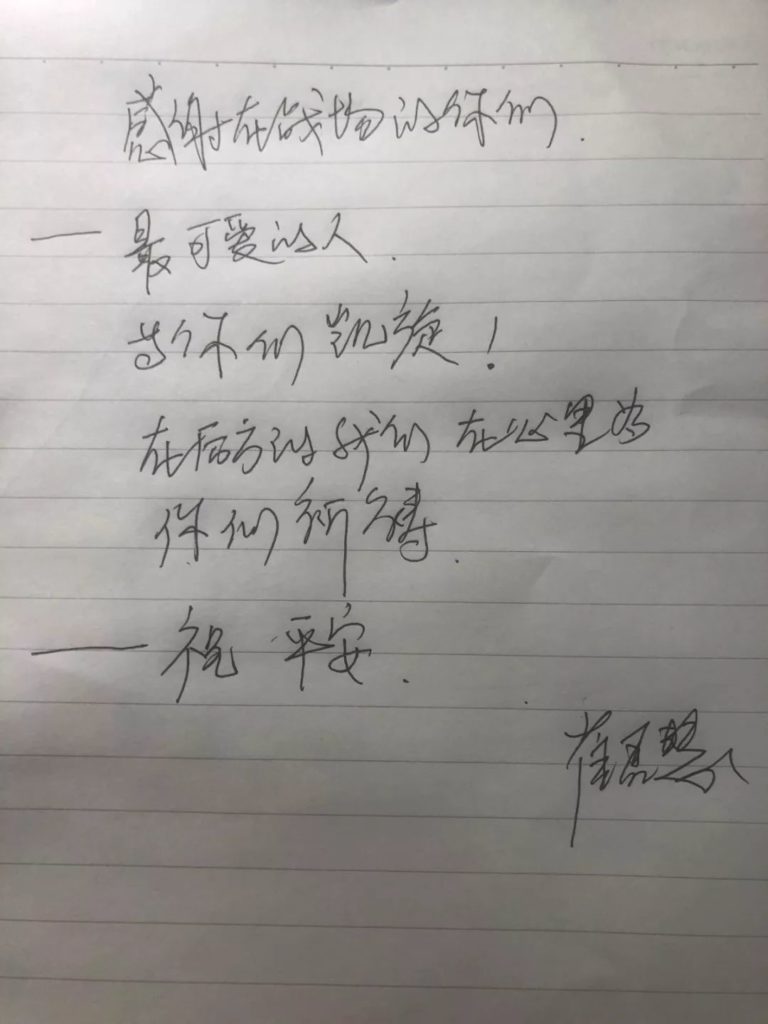 感谢在战场的你们.
— 最可爱的人.
等你们凯旋!
在后方的我们在心里为
你们祈祷.
— 祝 平安.